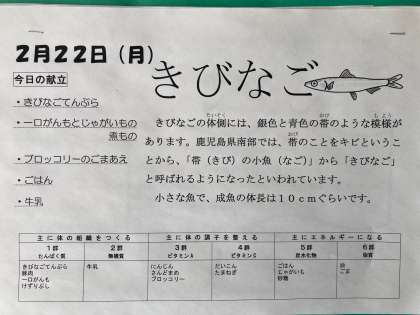 2月22日（月）
きびなご
今日の献立
・きびなごてんぷら
・一口がんもとじゃがいもの
煮もの
・ブロッコリーのごまあえ
・ごはん
・牛乳
きびなごの体側には、銀色と青色の帯のような模様が
あります。鹿児島県南部では、帯のことをキビということ
から、「帯（きび）の小魚（なご）」から「きびなご」
と呼ばれるようになったといわれています。
小さな魚で、成魚の体長は１０ｃｍぐらいです。
主に体の組織をつくる 主に体の調子を整える 主にエネルギーになる
1群 2群 3群 4群 5群 6群
たんぱく質 無機質 ビタミンA ビタミンC 炭水化物 脂質
きびなごてんぷら 牛乳 にんじん だいこん ごはん 油
豚肉 さんどまめ たまねぎ じゃがいも ごま
一口がんも ブロッコリー 砂糖
けずりぶし